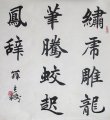 繡虎雕龍
筆騰蛟起
鳳辭